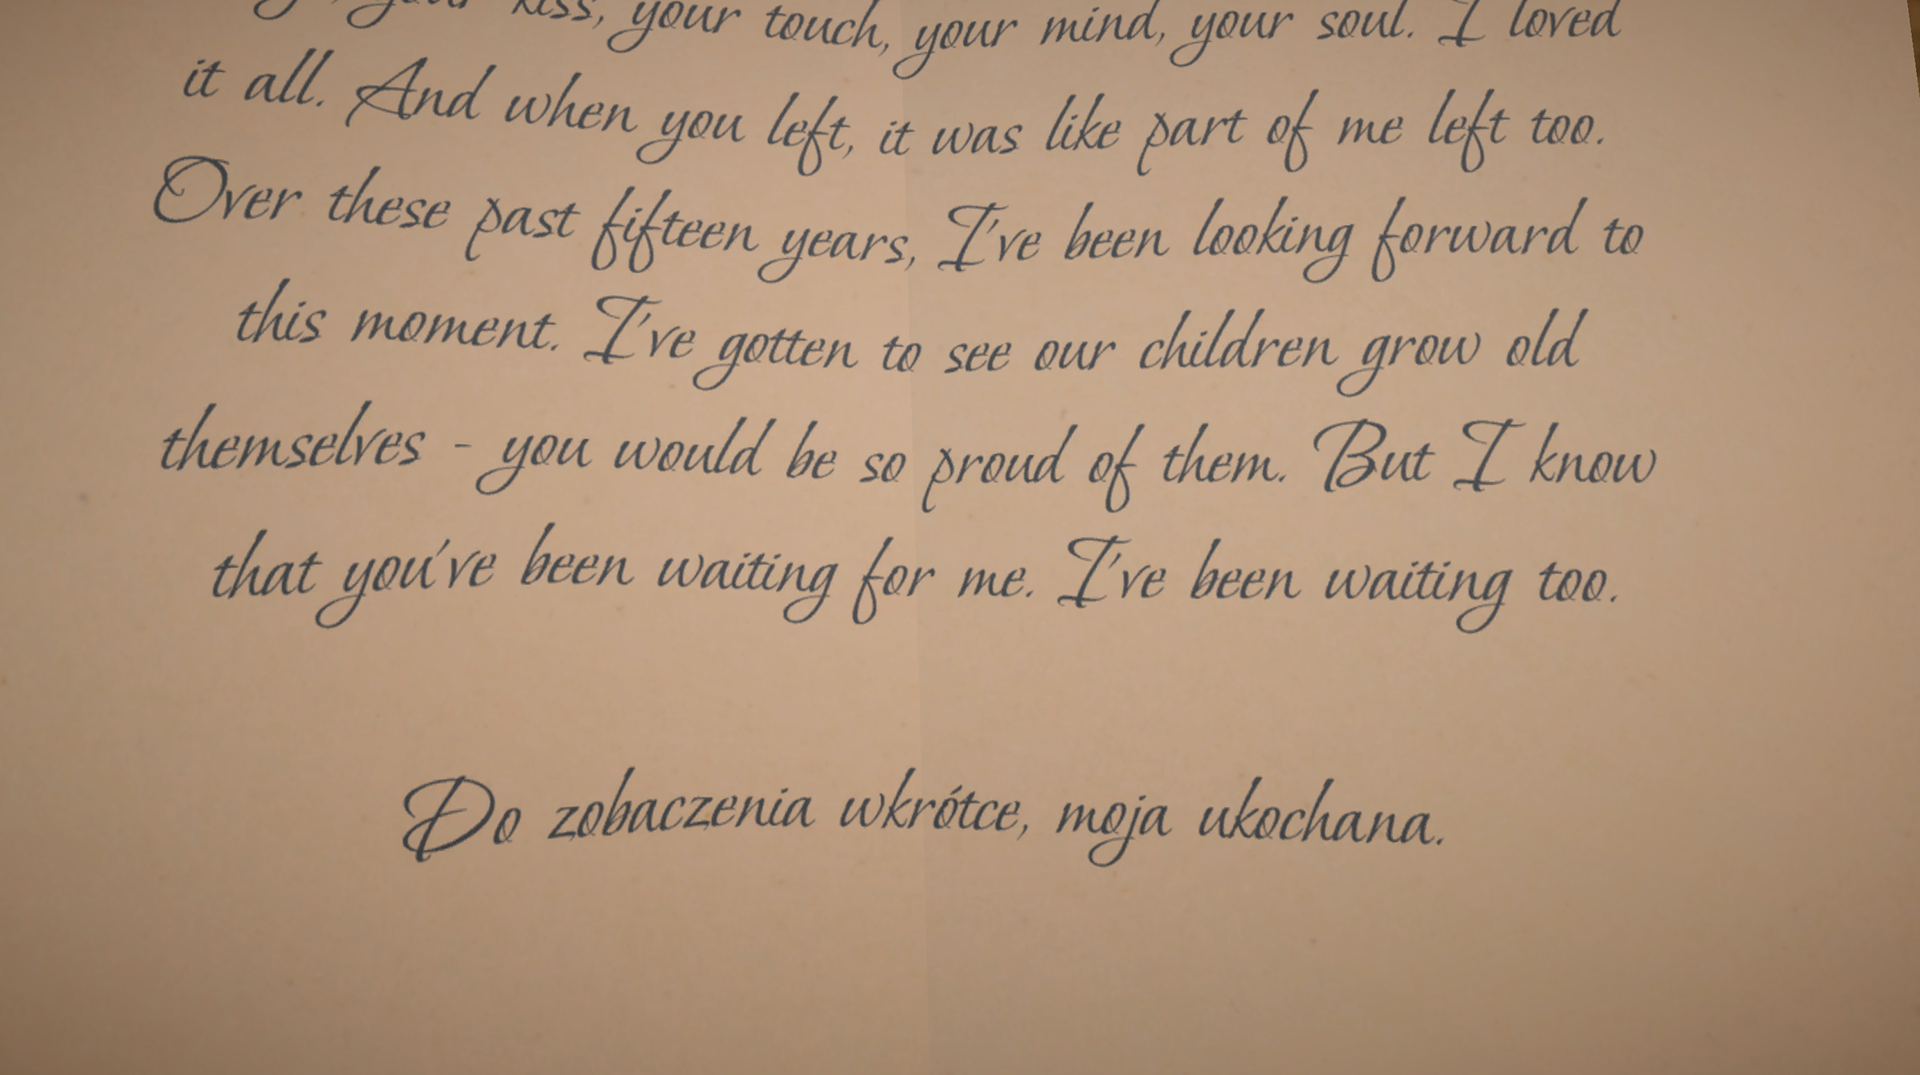 your kiss, your touch, your mind, your soul. I loved
it all. And when you left, it was like part of me left too.
Over these past fifteen years, I've been looking forward to
this moment. I've gotten to see our children grow old
themselves - you would be so proud of them. But I know
that you've been waiting for me. I've been waiting too.
Do zobaczenia wkrótce, moja ukochana.